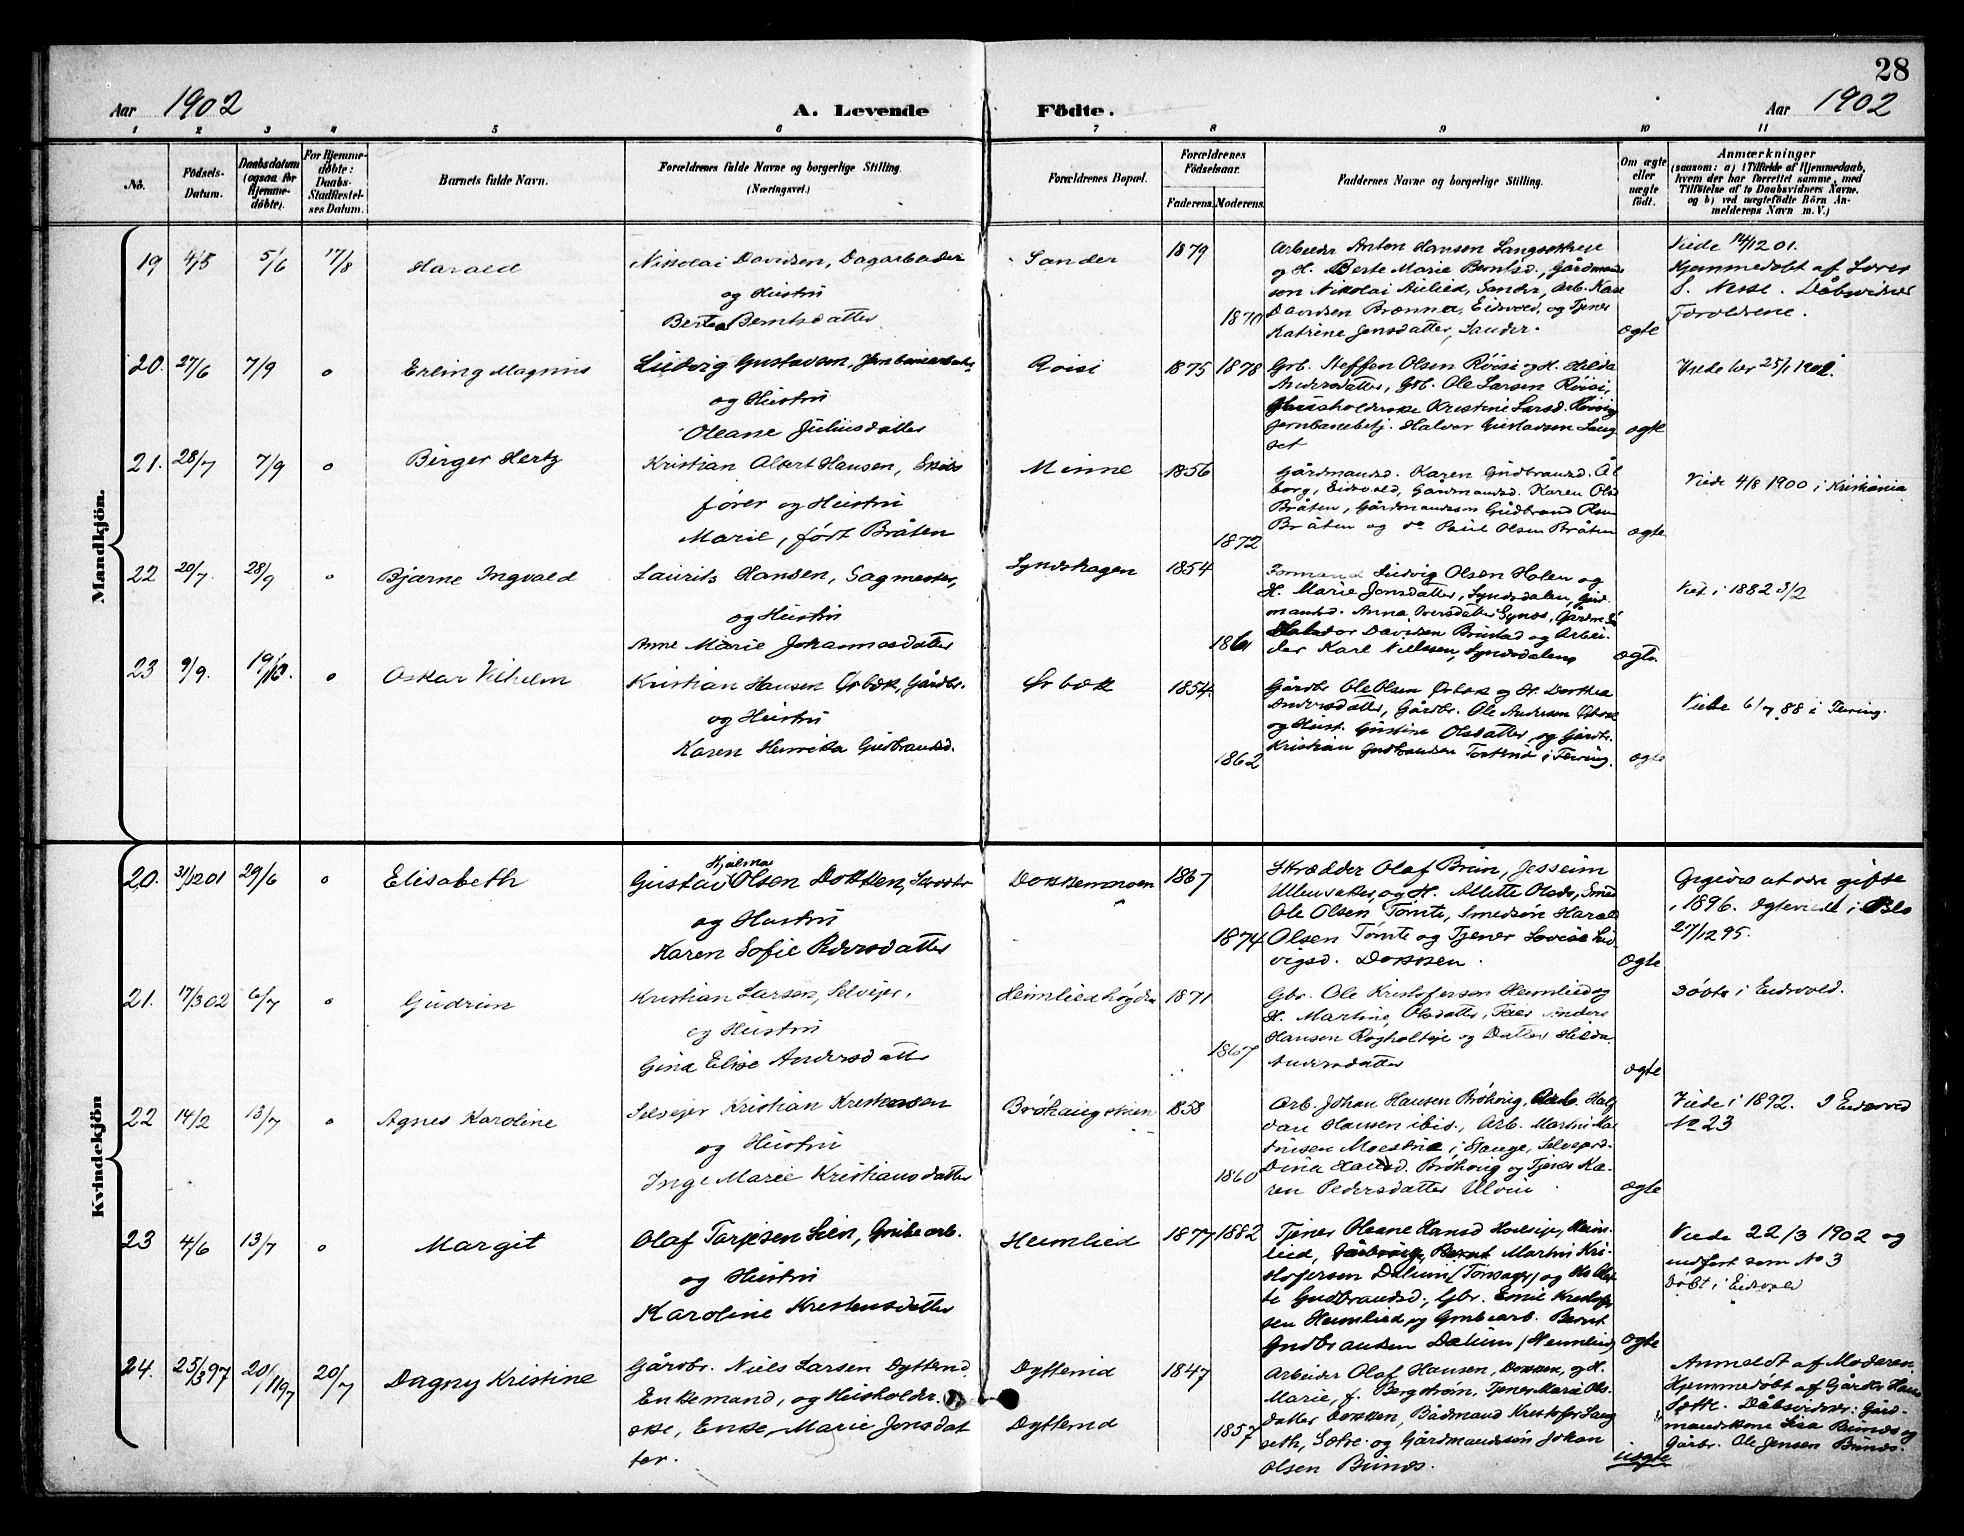 28
Aar 1902 A. Levende Födte. Aar 1902
1 2 3 4 5 6 7 8 9 10 11
No. Födsels-Datum. Daabsdatum (ogsaa for Hjemme-döbte). For Hjemme-döbte: Daabs-Stadfæstel-ses Datum. Barnets fulde Navn. Forældrenes fulde Navne og borgerlige Stilling. (Næringsvei.) Forældrenes Bopæl. Forældrenes Födselsaar. Faderens. Moderens. Faddernes Navne og borgerlige Stilling. Om ægte eller uægte födt. Anmærkninger
(saasom: a) i Tilfælde af Hjemmedaab,
hvem der har forrettet samme, med
Tilföielse af to Daabsvidners Navne,
og b) ved uægtefödte Börn An-
melderens Navn m. V.)
Mandkjön.
19 4/5 5/6 17/8 Harald
Nikolai Davidsen, Dagarbeider
og Hustru
Bertea Berntsdatter
Sander 1879 1870
Arbeider Anton Hansen
og H. Berte Marie Berntsd., Gårdmands
søn Nikolai Aulied, Sander, Arb. Kare
Davidsen Brænna, Eidsvold, og Tjener
Katrine Jensdatter, Sander.
ægte
Viede 14/12 01.
Hjemmedøbt af Lærer
S. Nesse. Dåbsvidner
Forældrene.
20. 27/6 7/9 o Erling Magnus
Ludvig Gustavsen, Jernbanearbeider
og Hustru
Oleane Juliusdatter
Røisi 1875 1878
Grb. Steffen Olsen Røisi og H. Hilda
Andersdatter, Grb. Ole Larsen Røisi,
Husholderske Kristine Larsd. Røisi,
Jernbanebetj. Halvor Gustavsen Lang
set
ægte
Viede her 25/1 1902.
21. 28/7 7/9 o Birger Hertz
Kristian Albert Hansen, Skibs
fører og Hustru
Marie, født Bråten
Minne 1856 1872
Gårdmandsd. Karen Gudbrandsd. Ål
borg, Eidsvold, Gårdmandsd. Karen Olsd
Bråten, Gårdmandssøn Gudbrand Olsen
Bråten og do Paul Olsen Bråten
ægte
Viede 4/8 1900 i Kristiania
22 20/7. 28/9 o Bjarne Ingvald
Laurits Hansen, Sagmester,
og Hustru
Anne Marie Johannesdatter
Syndshagen 1854 1861
Formand Ludvig Olsen Holen og
H. Marie Jensdatter, Syndsdalen, Gård
mandsd. Anna Iversdatter Synds, Gårdm. S
Halvdor Davidsen Brustad og Arbei-
der Karl Nielssen, Syndsdalen
ægte.
Viet i 1882 3/2
23 9/9. 19/10. o Oskar Vilhelm
Kristian Hansen Ørbæk, Gårdbr.
og Hustru
Karen Henrikka Gudbrandsd.
Ørbæk 1854. 1862
Gårdbr Ole Olsen Ørbæk og H. Dorthea
Andersdatter, Gårdbr. Ole Andersen Ørbæk
og Hust. Gustine Olsdatter, og Gårdbr.
Kristian Gudbrandsen Torstind i Feiring.
ægte
Viede 6/7 88 i Feiring.
Kvindekjön
20. 31/12 01 29/6 o Elisabeth
Hjalmar
Gustav Olsen Dokken, Skrædder
og Hustru
Karen Sofie Pedersdatter
Dokkenmoen 1867 1874
Skrædder Olaf Bruun, Jesseim
Ullensaker, og H. Allette Olsdr, Smed
Ole Olsen Tømte, Smedsøn Harald
Olsen Tømte og Tjener Lovise Lud
vigsd. Dokken.
ægte
Opgives at være gifte
1896. Ægteviede i
27/12 95.
21. 17/3 02 6/7 o Gudrun
Kristian Larsen, Selveier,
og Hustru
Gina Elise Andersdatter
Heimliedhøgda 1871 1867
Gbr. Ole Kristofersen Heimlied og
H. Martine Olsdatter, Fær Anders
Hansen Røgholteje og Datter Hilda
Andersdatter
ægte
Døbte i Eidsvold.
22 14/2 13/7 o Agnes Karoline
Selveier Kristian Kristiansen
og Hustru
Inge Marie Kristiansdatter
Brøhaugstuen 1858 1860
Arb. Johan Hansen Brøhaug, Arb. Hal
van Hansen ibid., Arb. Martin Mar
tinsen Moestue i Stange, Selveierd.
Dina Hansd. Brøhaug og Tjener Ka-
ren Pedersdatter Ulvin
ægte
Viede i 1892. I Eidsvold
No 23
23 4/6 13/7 o Margit
Olaf Torgersen Lien, Grubearb.
og Hustru
Karoline Kristensdatter
Heimlied 1877 1882
Tjener Oleane Hansd Holseje, Heim-
lied, Gårdbruger Bernt Martin Kri-
stofersen Dalum (Tonsager) og
Gudbrandsd., Gbr. Emil Kristofer
sen Heimlied og Grubearb. Bernt
Gudbrandsen Dalum, Heimlied
ægte
Viede 22/3 1902 og
indført som No 3
døbt i Eidsvold
24. 25/3 97 20/11 97 20/7 Dagny Kristine
Gårdbr. Niels Larsen Dyttend
Enkemand, og Husholder-
ske, Enke Marie Jonsdat
ter.
Dyttend
Dyttend
1847 1857
Arbeider Olaf Hansen, Dokken, og H.
Marie, f. Bergstrøm, Tjener Marie Ols-
datter Dokken, Bådmand Kristofer Lang
seth, Sætre og Gårdmandssøn Johan
Olsen Bunds.
uægte
Anmeldt af Moderen
Hjemmedøbt af Gårdbr Hans
Sætte. Dåbsvidner: Gård-
mandskone Lisa Bunds og
Gårbr. Ole Jensen Bunds.